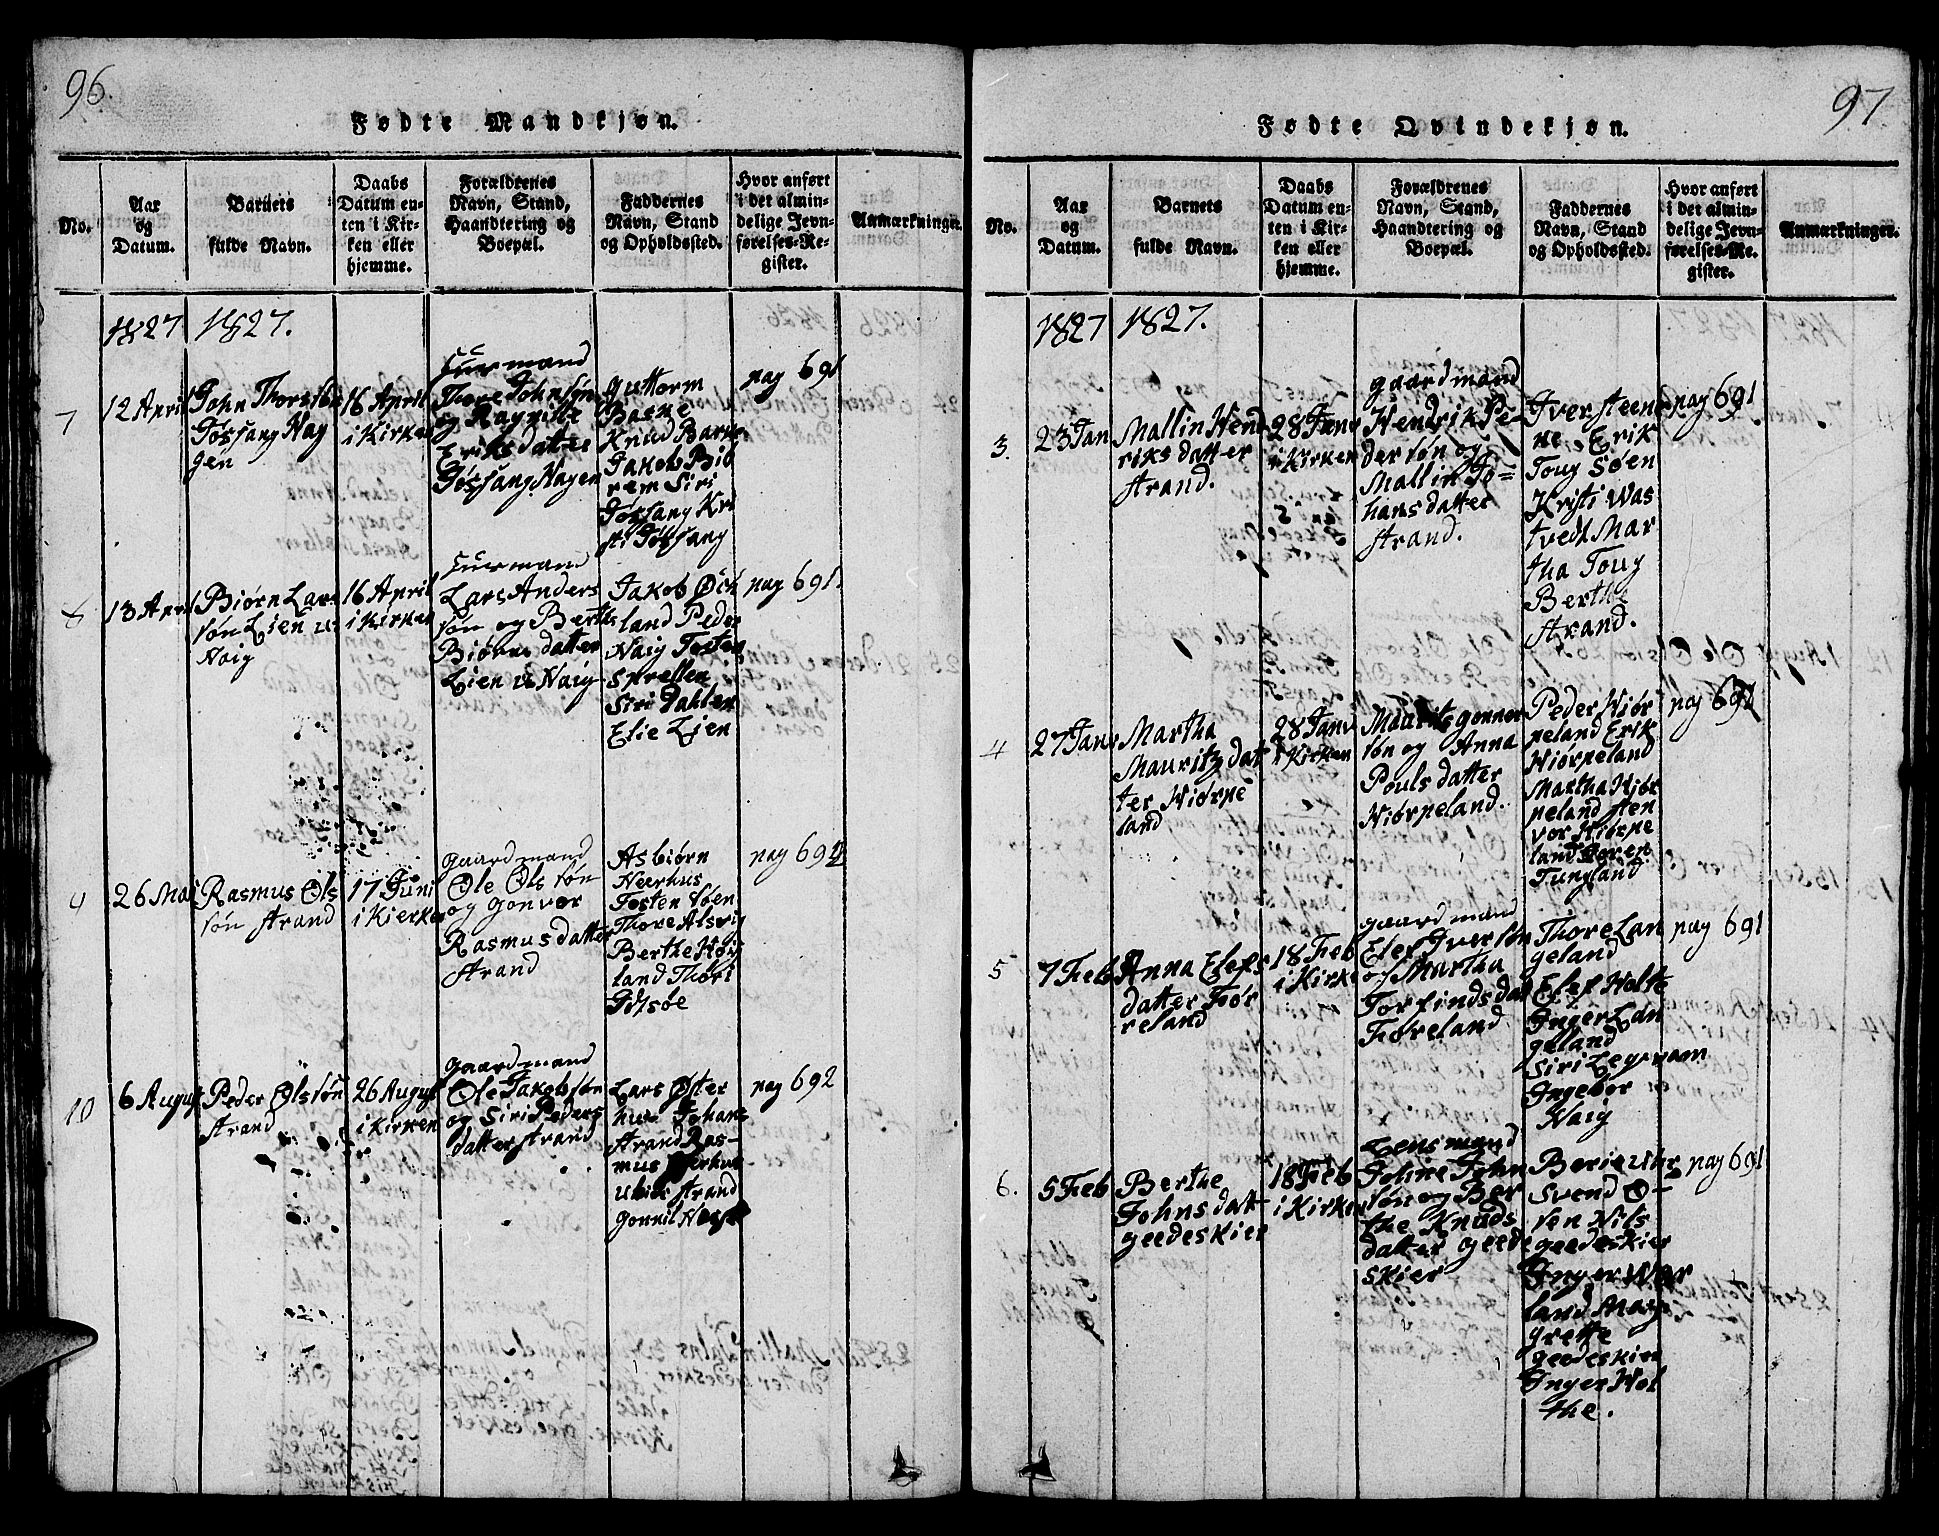 96.
Fødte Mandkjøn.
No.
Aar
og
Datum.
Barnets
fulde Navn.
Daabs
Datum en-
ten i Kir-
ken eller
hjemme.
Forældrenes
Navn, Stand,
Haandtering og
Boepæl.
Faddernes
Navn, Stand
og Opholdssted.
Hvor anført
i det almin-
delige Jevn-
førelses-Re-
gister.
Anmærkninger.
1827 1827.
7
12 April
John Thoresøn
Tøssang Hag
gen
16 April
i Kirken
Huusmand
Thore Johnsøn
og Ragnille
Eriksdatter
Tøssang Hagen
Guttorm
Barke
Knud Barke
Jakob Biø
rem Siri
Tøssang Kri
sti Tøssang
pag 691
8
13 April
Biørn Lars
søn Lien u
Vaig
16 April
i Kirken
Huusmand
Lars Anders
søn og Berthe
Biørnsdatter
Lien u Vaig
Jakob Øck
land Peder
Vaig Tosten
Sprellen
Siri Dahlen
Elie Lien
pag 691.
9
26 Mai
Rasmus Ols
søn Strand
17 Juni
i Kierken
Gaardmand
Ole Olssøn
og Gonvor
Rasmusdatter
Strand
Asbiørn
Neerhus
Tosten Søen
Thore Alsvig
Berthe Høi
land Thori
Idsøe
pag 692
10
6 August
Peder Olssøn
Strand
26 August
i Kirken
Gaardmand
Ole Jakobsøn
og Siri Peders
datter Strand
Lars Øster
hus Johans
Strand Ras-
mus
Strand
Gonnil
pag 692
97
Fødte Qvindekjøn.
No.
Aar
og
Datum.
Barnets
fulde Navn.
Daabs
Datum en-
ten i Kir-
ken eller
hjemme.
Forældrenes
Navn, Stand,
Haandtering og
Boepæl.
Faddernes
Navn, Stand
og Opholdssted.
Hvor anført
i det almin-
delige Jevn-
førelses-Re-
gister.
Anmærkninger.
1827 1827.
3.
23 Jan
Mallin Hend
riksdatter
Strand.
28 Janv
i Kirken
Gaardmand
Hendrik Pe-
dersøn og
Mallin Jo-
hansdatter
Strand.
Iver Steens
Erik
Toug Søen
Kristi Was
tvedt Mar
tha Toug
Berthe
Strand.
pag 691
4
27 Janv
Martha
Mauritzdat
ter Hiørpe
land
28 Janv
i Kirken
Maurits Gonner
søn og Anna
Poulsdatter
Hiørpeland.
Peder Hiør
peland Erik
Hiørpeland
Martha Hiør
peland Sten
vor Hiørpe
land Søren
Tungland
pag 691
5
7 Feb
Anna Elefs
datter Før
reland
18 Feb
i Kirken
Gaardmand
Elef Iversøn
og Martha
Torfindsdat
Føreland
Thore Lan
geland
Elef Holte
Inger Lan
geland
Siri
Ingebor
Vaig
pag 691
6.
5 Feb
Berthe
Johnsdat
Geedeskier
18 Feb
i Kirken
Lensmand
John
søn og Ber
the Knuds
datter Geede
skier
Svend Ø-
Nils
Geedeskier
Inger
land Mar
grette
Geedeskier
Inger Hol
the.
pag 691